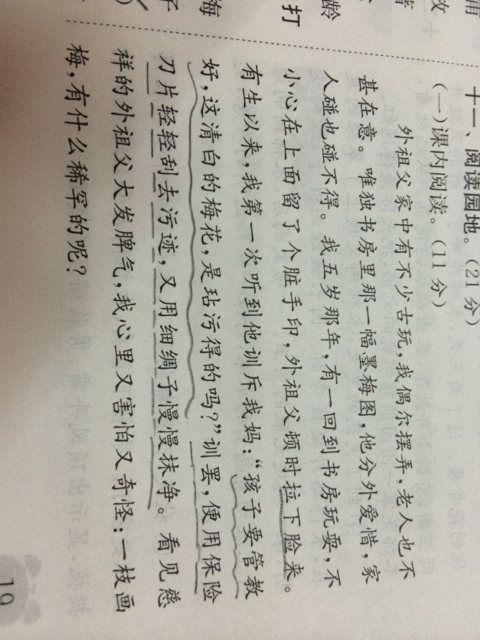 龄
打
海
十一、阅读园地。(21 分)
(一)课内阅读。(11 分)
外祖父家中有不少古玩,我偶尔摆弄,老人也不
甚在意。唯独书房里那一幅墨梅图,他分外爱惜,家
人碰也碰不得。我五岁那年,有一回到书房玩耍,不
小心在上面留了个脏手印,外祖父顿时拉下脸来。
有生以来,我第一次听到他训斥我妈:“孩子要管教
好,这清白的梅花,是玷污得的吗?”训罢,便用保险
刀片轻轻刮去污迹,又用细绸子慢慢抹净。看见慈
祥的外祖父大发脾气,我心里又害怕又奇怪:一枝画
梅,有什么稀罕的呢?
19